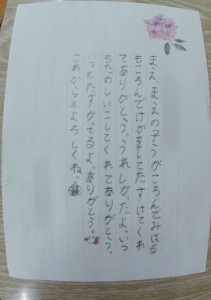 まえ、まえの子うがころんでみはる
もころんでけがをしてたすけてくれ
てありがとう。うれしかたよ。いつ
もたのしいこしてくれてありがとう。
いつもたすかてるよ。ありがとう。
これからもよろしくね。